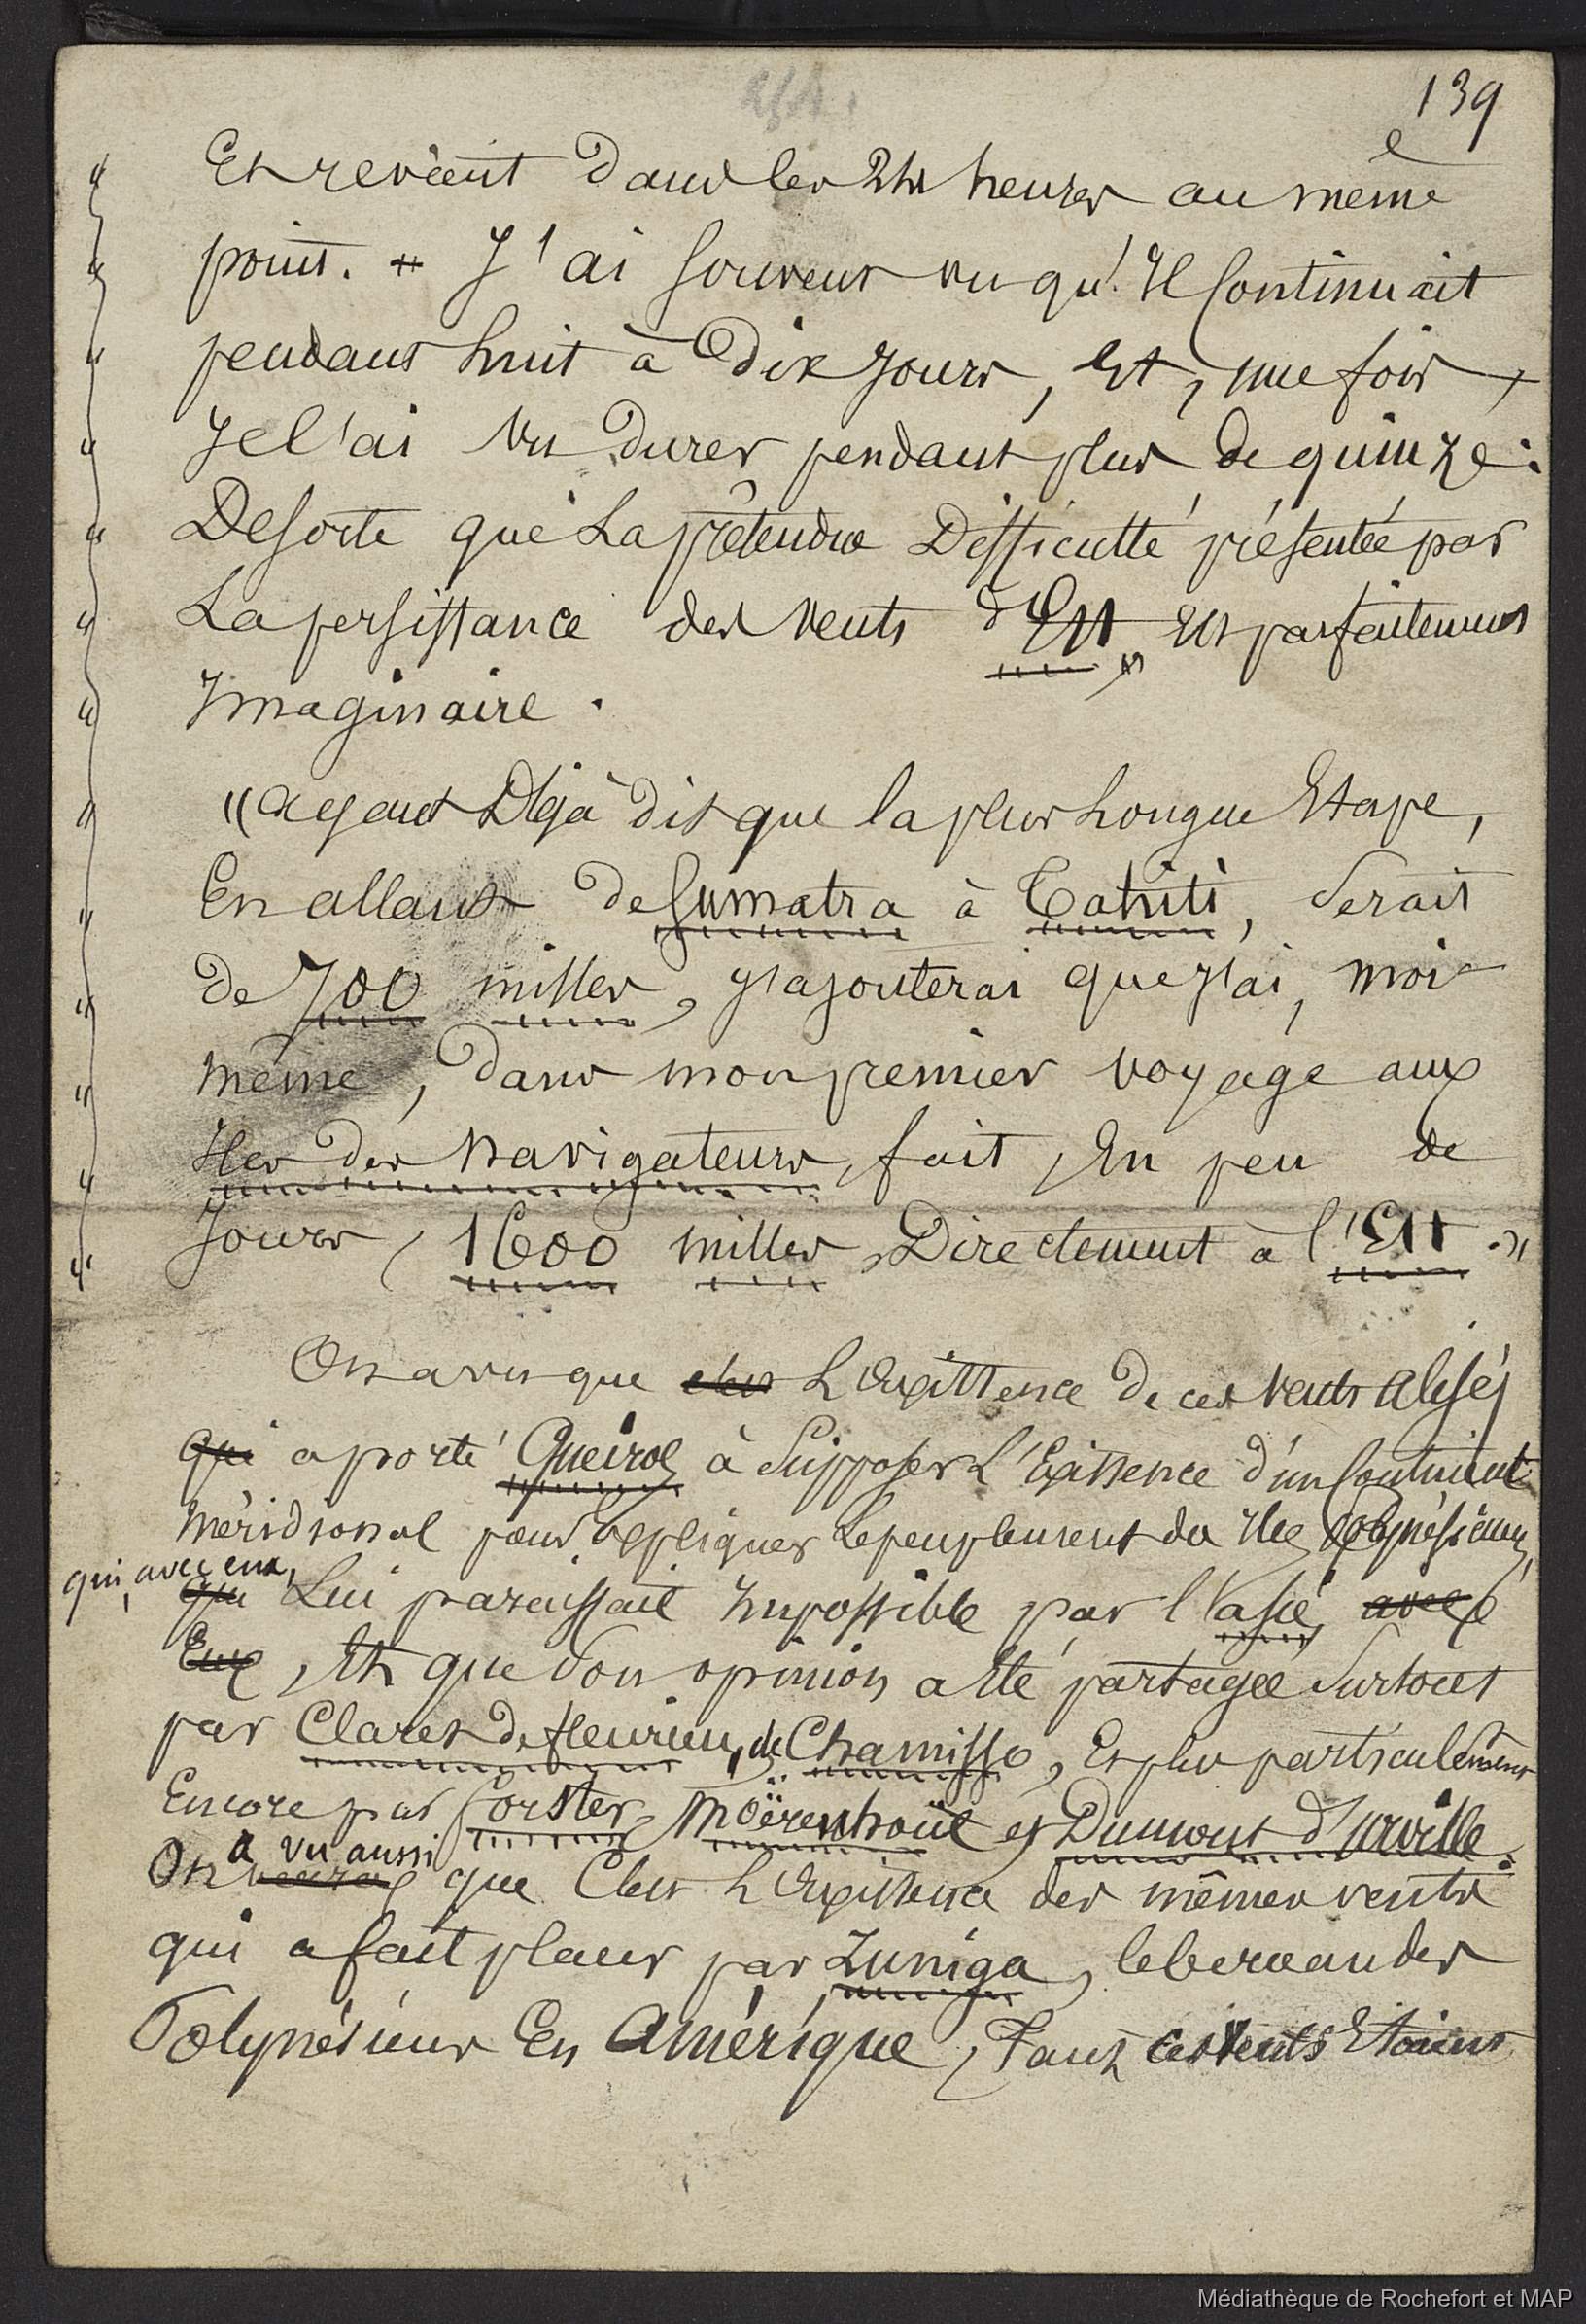 139
" Et revient dans les 24 heures au même
" point. + J'ai souvent vu qu'il continuait
" pendant huit à dix jours, Et, une fois,
" Je l'ai vu durer pendant plus de quinze :
" De sorte que La prétendue Difficulté présentée par
" La persistance des vents d'Est, Est parfaitement
" Imaginaire.
" "ayant Déjà dit que la plus Longue Etape,
" En allant de Sumatra à Tahiti, serait
" de 700 milles, j'ajouterai que j'ai, moi-
" même, dans mon premier voyage aux
" Iles des Navigateurs, fait, En peu de
" Jours, 1600 milles, Directement à l'Est."
On a vu que c'est L'Existence de ces vents alisés
qui a porté Queiros à supposer L'Existence d'un Continent
Méridional pour Expliquer Le peuplement des Iles Polynésiennes,
qui, avec eux,
qui Lui paraissait Impossible par l'asie, avec
Eux, Et que son opinion a Eté partagée surtout
par Claret de fleurieu, de Chamisso, Et plus particulièrement
Encore par Forster, Moërenhoüt et Dumont d'Urville.
a vu aussi
On que C'est L'Existence des mêmes vents
qui a fait placer par Zuniga, le berceau des
Polynésiens En Amérique, Tant ces vents Etaient
Médiathèque de Rochefort et MAP